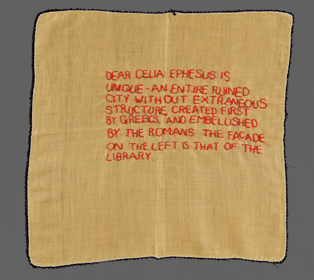 DEAR CELIA EPHESUS IS
UNIQUE - AN ENTIRE RUINED
CITY WITHOUT EXTRANEOUS
STRUCTURE, CREATED FIRST
BY GREEKS, AND EMBELLISHED
BY THE ROMANS. THE FACADE
ON THE LEFT IS THAT OF THE
LIBRARY